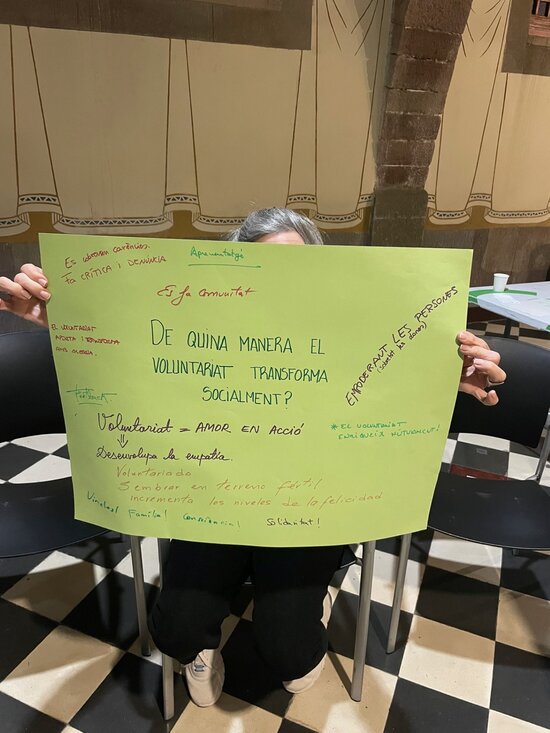 Es cobreixen carències.
Fa CRÍTICA i DENÚNCIA
Aprenentatge
Es fa comunitat
DE QUINA MANERA EL
VOLUNTARIAT TRANSFORMA
SOCIALMENT?
EMPODERANT LES PERSONES
(sobretot les dones)
EL VOLUNTARIAT
AJUTA I TRANSFORMA
AMB ALEGRIA.
Voluntariat = AMOR EN ACCIÓ
Desenvolupa la empatía.
* EL VOLUNTARIAT
ENRIQUEIX MUTUAMENT!
Voluntariado
Sembrar en terreno fértil
incrementa los niveles de la felicidad
Vincles! Família! Consciència! Solidaritat!